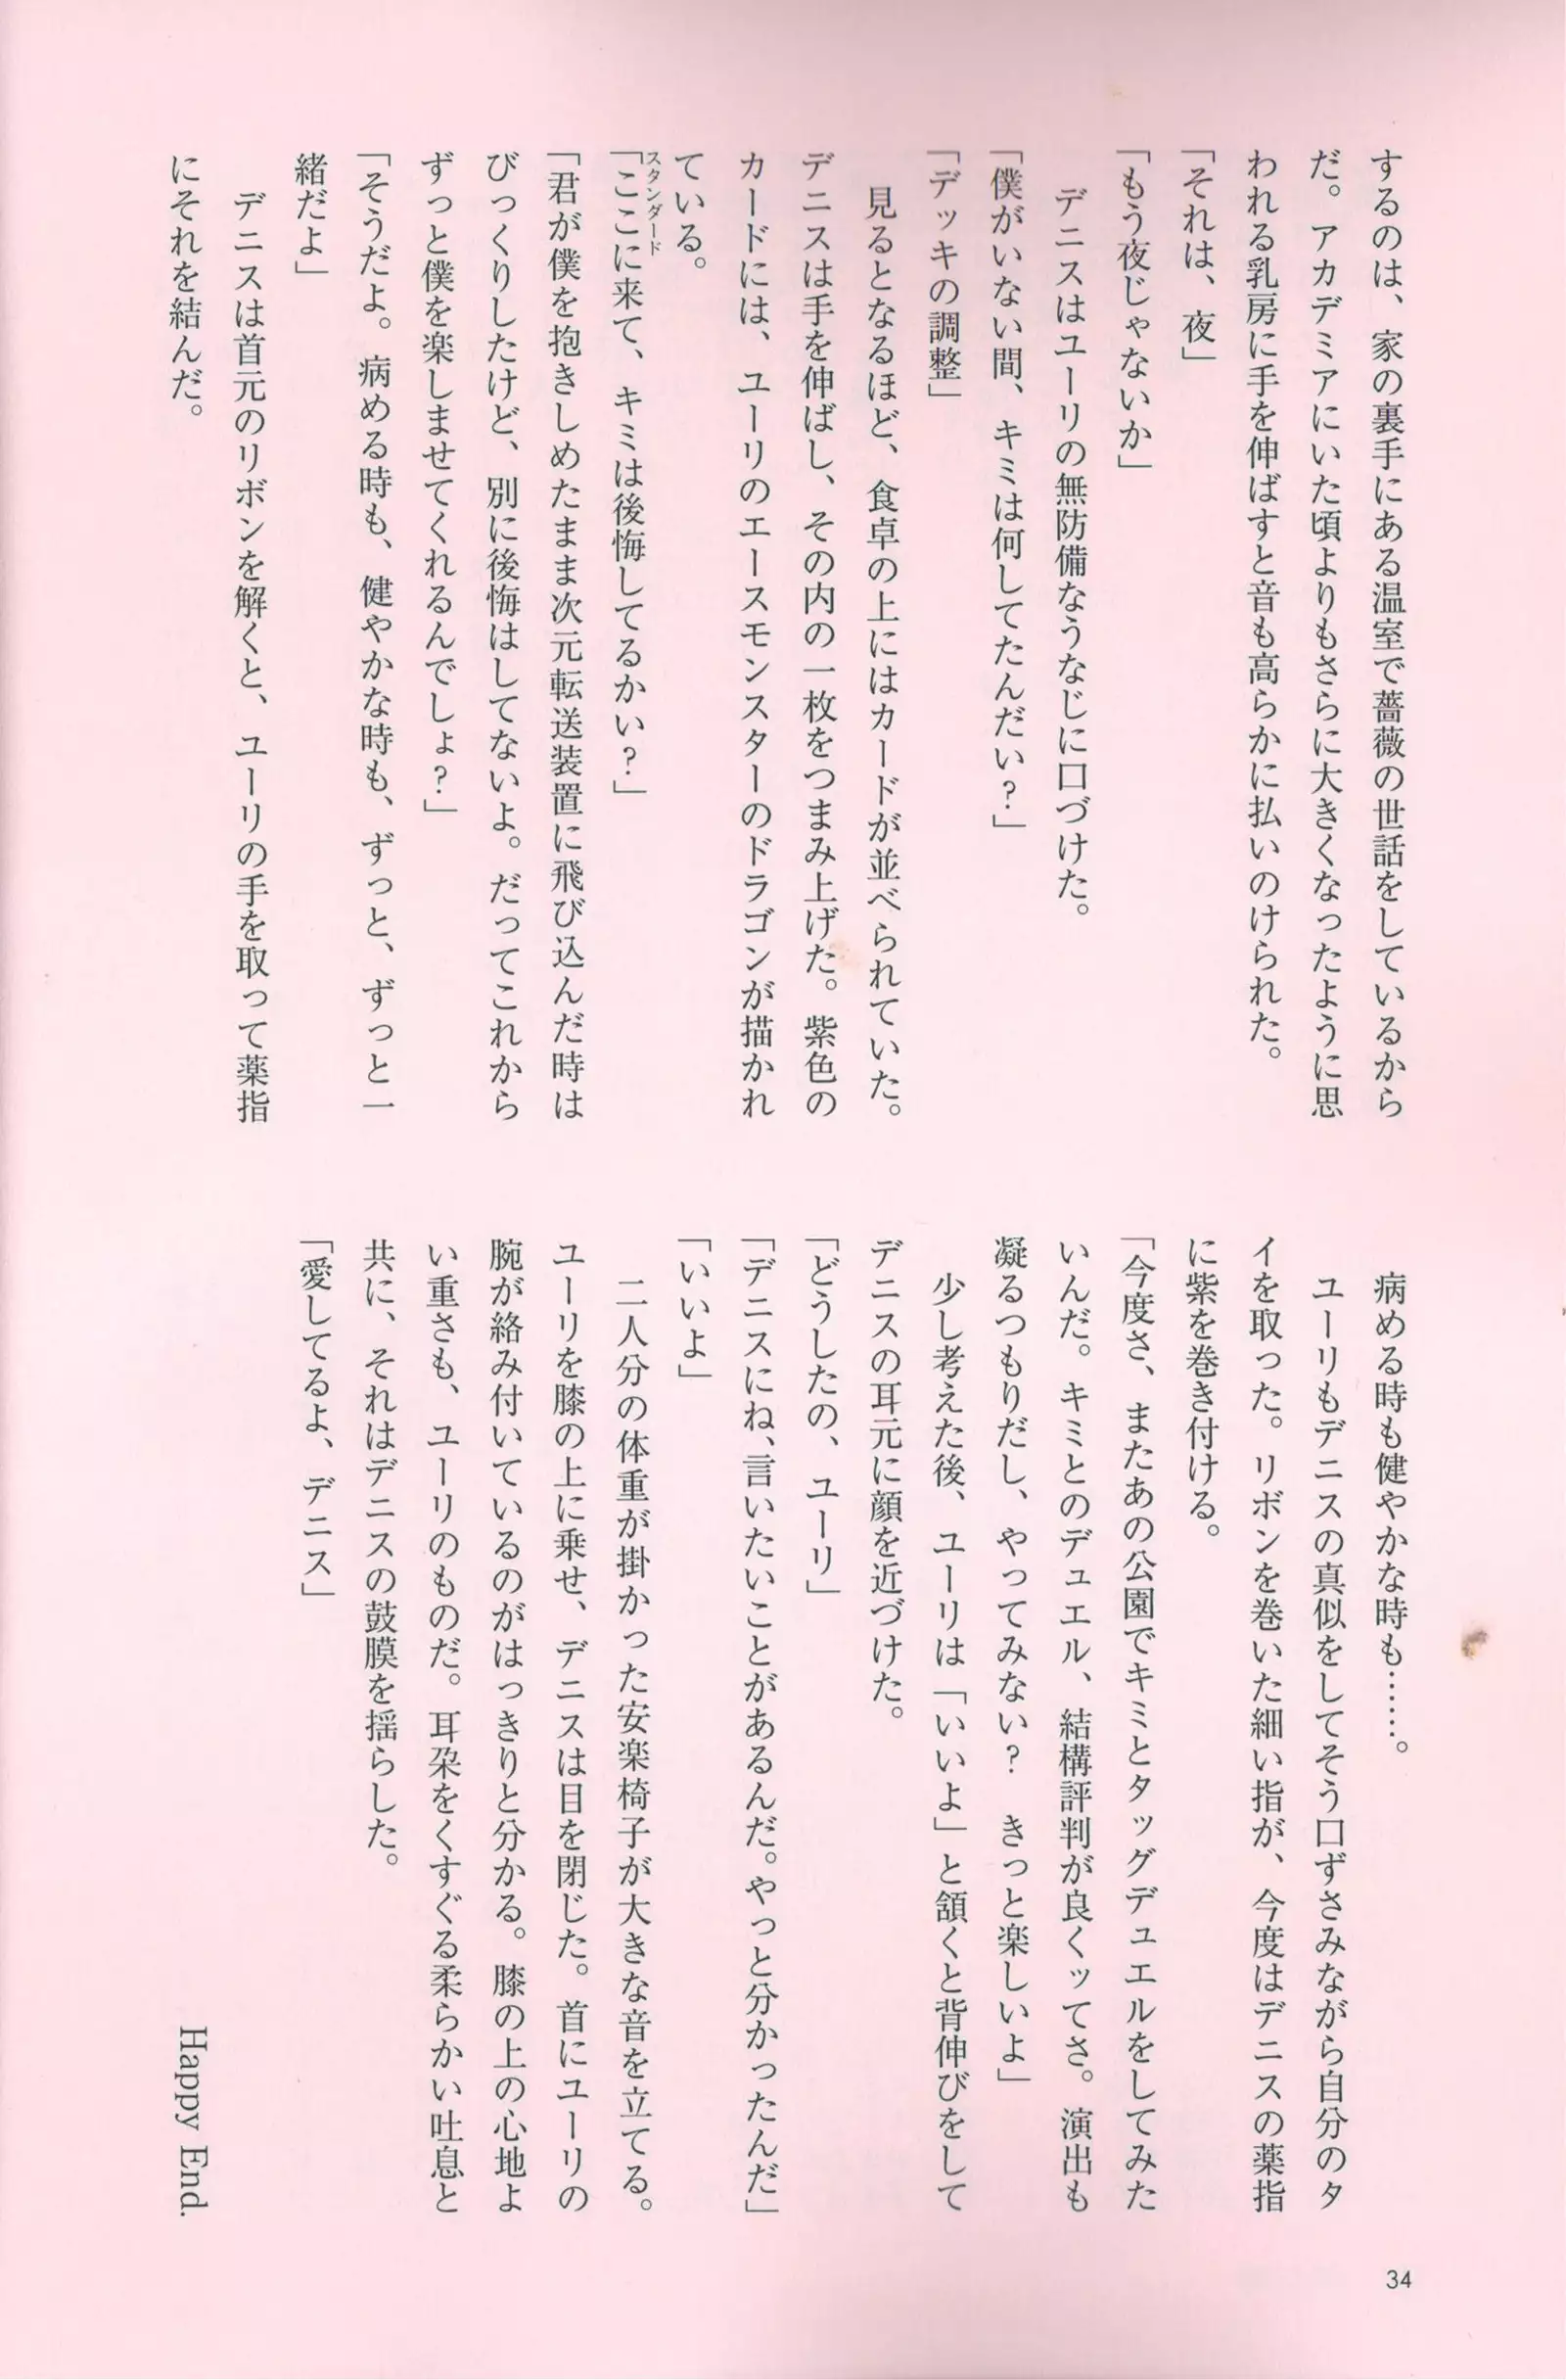 するのは、家の裏手にある温室で薔薇の世話をしているから
だ。アカデミアにいた頃よりもさらに大きくなったように思
われる乳房に手を伸ばすと音も高らかに払いのけられた。
「それは、夜」
「もう夜じゃないか」
　デニスはユーリの無防備なうなじに口づけた。
「僕がいない間、キミは何してたんだい？」
「デッキの調整」
　見るとなるほど、食卓の上にはカードが並べられていた。
デニスは手を伸ばし、その内の一枚をつまみ上げた。紫色の
カードには、ユーリのエースモンスターのドラゴンが描かれ
ている。
スタンダード
「ここに来て、キミは後悔してるかい？」
「君が僕を抱きしめたまま次元転送装置に飛び込んだ時は
びっくりしたけど、別に後悔はしてないよ。だってこれから
ずっと僕を楽しませてくれるんでしょ？」
「そうだよ。病める時も、健やかな時も、ずっと、ずっと一
緒だよ」
　デニスは首元のリボンを解くと、ユーリの手を取って薬指
にそれを結んだ。
　病める時も健やかな時も……。
　ユーリもデニスの真似をしてそう口ずさみながら自分のタ
イを取った。リボンを巻いた細い指が、今度はデニスの薬指
に紫を巻き付ける。
「今度さ、またあの公園でキミとタッグデュエルをしてみた
いんだ。キミとのデュエル、結構評判が良くッてさ。演出も
凝るつもりだし、やってみない？　きっと楽しいよ」
　少し考えた後、ユーリは「いいよ」と頷くと背伸びをして
デニスの耳元に顔を近づけた。
「どうしたの、ユーリ」
「デニスにね、言いたいことがあるんだ。やっと分かったんだ」
「いいよ」
　二人分の体重が掛かった安楽椅子が大きな音を立てる。
ユーリを膝の上に乗せ、デニスは目を閉じた。首にユーリの
腕が絡み付いているのがはっきりと分かる。膝の上の心地よ
い重さも、ユーリのものだ。耳朶をくすぐる柔らかい吐息と
共に、それはデニスの鼓膜を揺らした。
「愛してるよ、デニス」
Happy End.
34